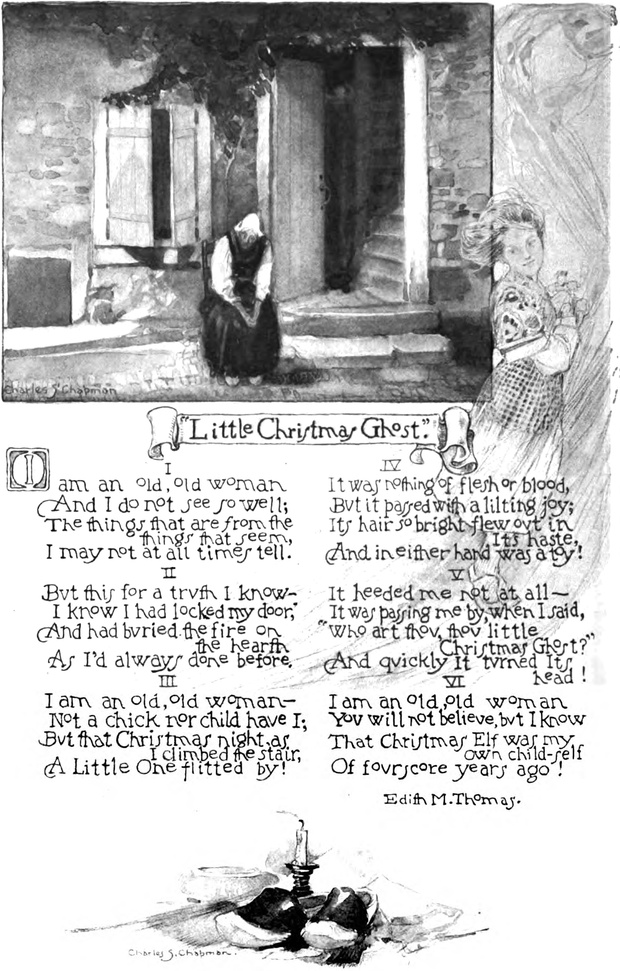 Charles S. Chapman
"Little Christmas Ghost".
I
I am an old, old woman
And I do not see so well;
The things that are from the
things that seem,
I may not at all times tell.
II
But this for a truth I know—
I know I had locked my door,
And had buried the fire on
the hearth
As I'd always done before.
III
I am an old, old woman—
Not a chick nor child have I;
But that Christmas night, as
I climbed the stair,
A Little One flitted by!
IV
It was nothing of flesh or blood,
But it passed with a lilting joy;
Its hair so bright flew out in
Its haste,
And in either hand was a toy!
V
It heeded me not at all—
It was passing me by, when I said,
"Who art thou, thou little
Christmas Ghost?"
And quickly It turned Its
head!
VI
I am an old, old woman
You will not believe, but I know
That Christmas Elf was my
own child-self
Of fourscore years ago!
Edith M. Thomas.
Charles S. Chapman.